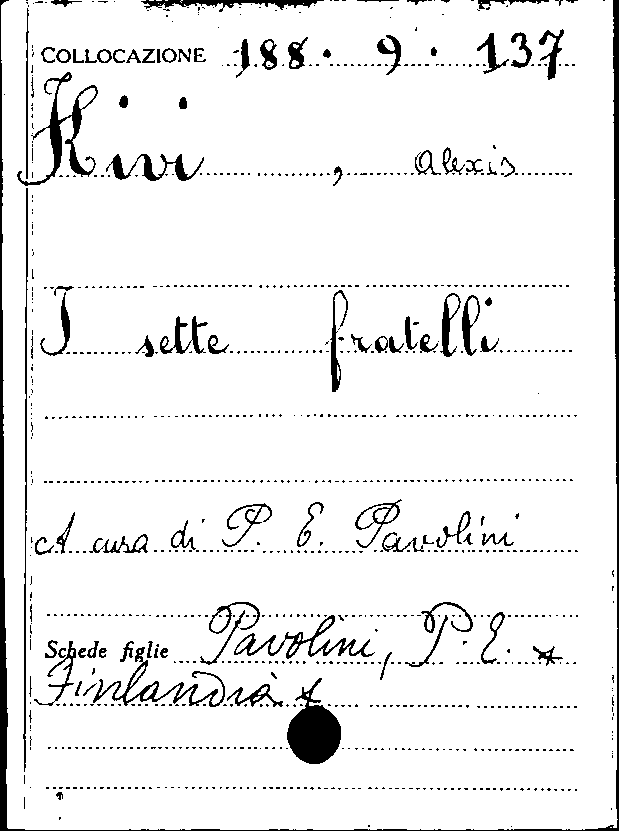 COLLOCAZIONE 188. 9. 137
Kivi, Alexis
I sette fratelli
A cura di P. E. Pavolini
Schede figlie Pavolini, P. E. x
Finlandia x